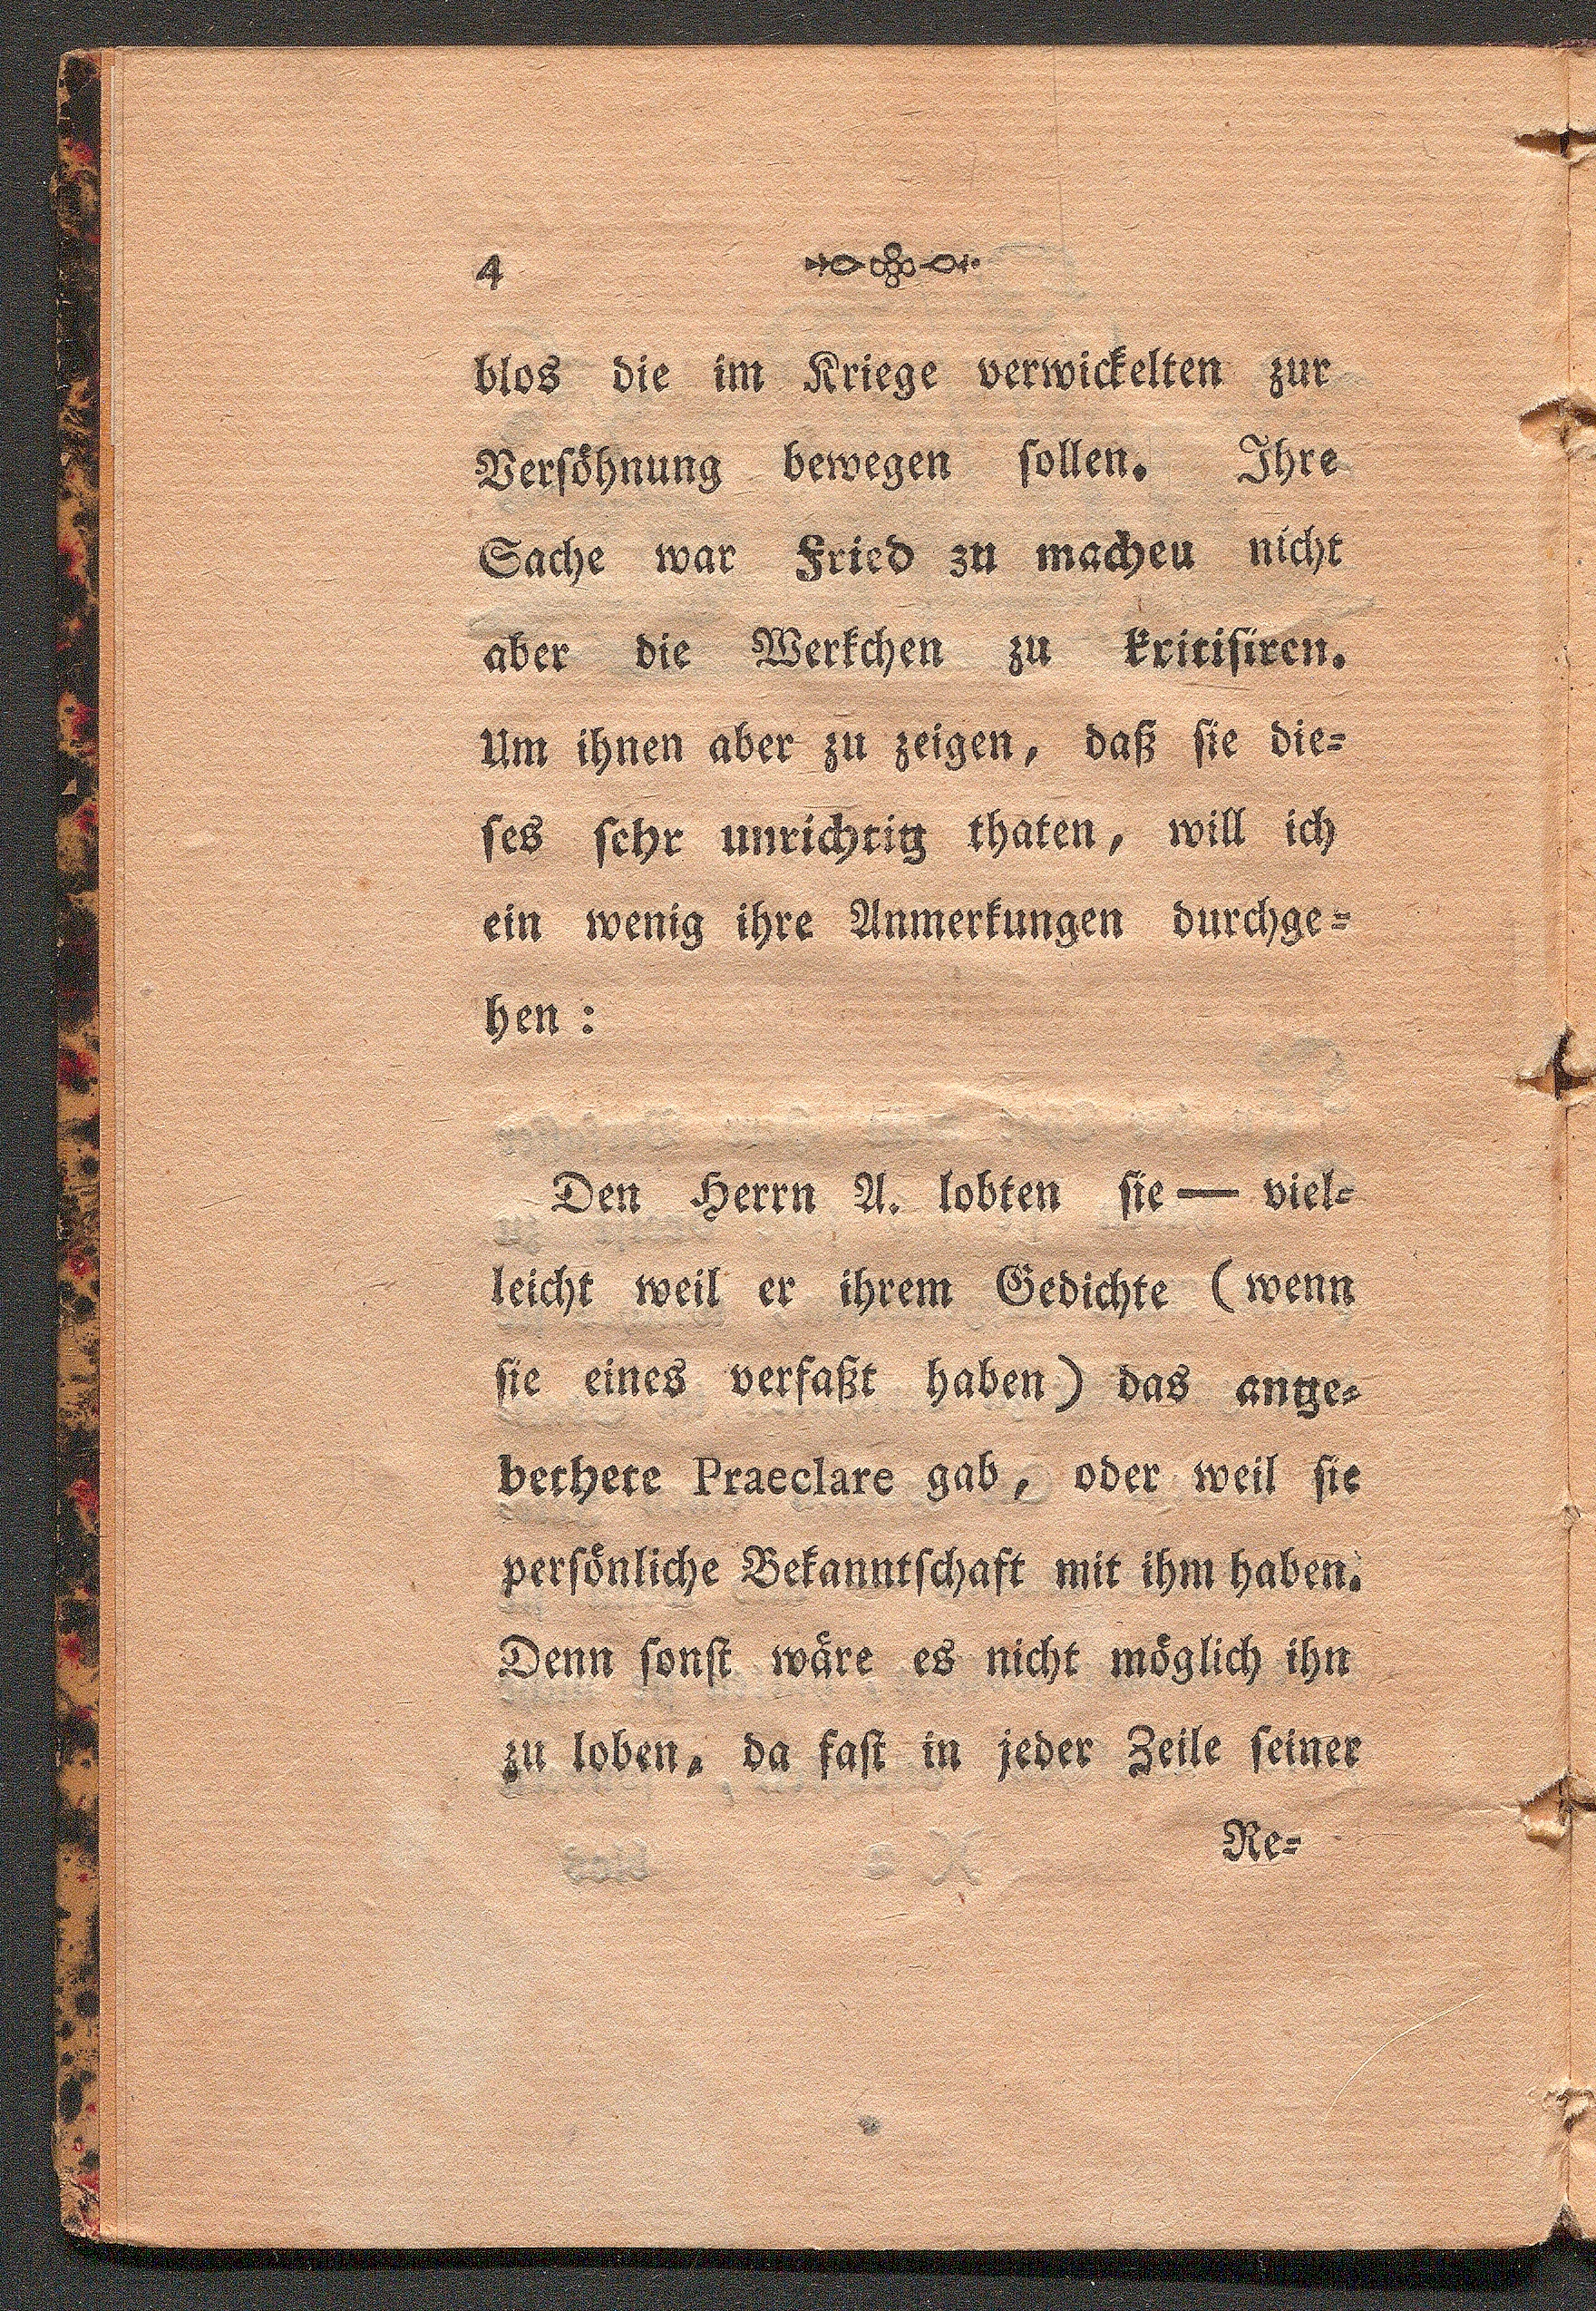 4
blos die im Kriege verwickelten zur
Verſöhnung bewegen ſollen. Ihre
Sache war Fried zu macheu nicht
aber die Werkchen zu kritiſiren.
Um ihnen aber zu zeigen, daß ſie die=
ſes ſehr unrichtig thaten, will ich
ein wenig ihre Anmerkungen durchge=
hen:
Den Herrn A. lobten ſie — viel=
leicht weil er ihrem Gedichte (wenn
ſie eines verfaßt haben) das ange=
bethete Praeclare gab, oder weil ſie
perſönliche Bekanntſchaft mit ihm haben.
Denn ſonſt wäre es nicht möglich ihn
zu loben, da faſt in jeder Zeile ſeiner
Re=